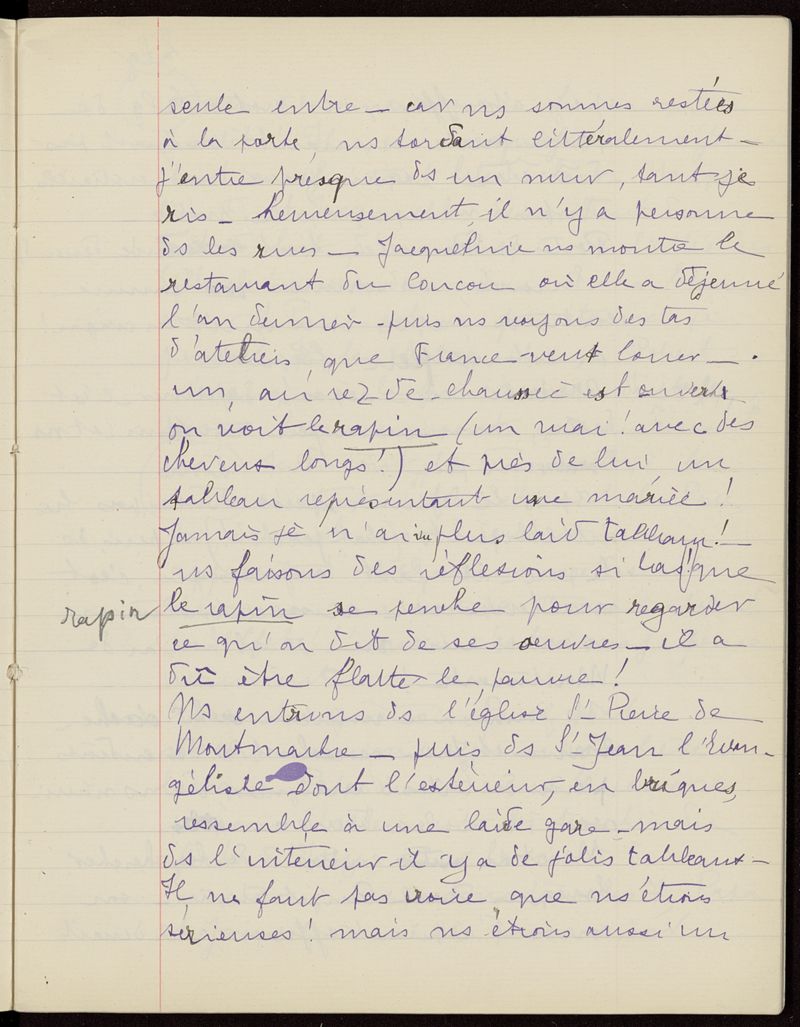 seule entre _ car ns sommes restées
à la porte, ns tordant littéralement _
j'entre presque ds un mur, tant je
ris _ heureusement, il n'y a personne
ds les rues _ Jacqueline ns montre le
restaurant du Coucou où elle a déjeuné
l'an dernier - puis ns voyons des tas
d'ateliers, que France veut louer _ .
un, au rez de-chaussée est ouvert
on voit le rapin (un vrai ! avec des
cheveux longs !) et près de lui, un
tableau représentant une mariée !
Jamais je n'ai vu plus laid tableau ! _
ns faisons des réflexions si bas ! que
rapin le rapin se penche pour regarder
ce qu'on dit de ses oeuvres _ il a
dû être flatté le pauvre !
Ns entrons ds l'église St Pierre de
Montmartre _ puis ds St Jean l'Evan-
géliste dont l'extérieur, en briques,
ressemble à une laide gare _ mais
ds l'intérieur il y a de jolis tableaux _
Il ne faut pas croire que ns étions
sérieuses ! mais ns étions aussi un